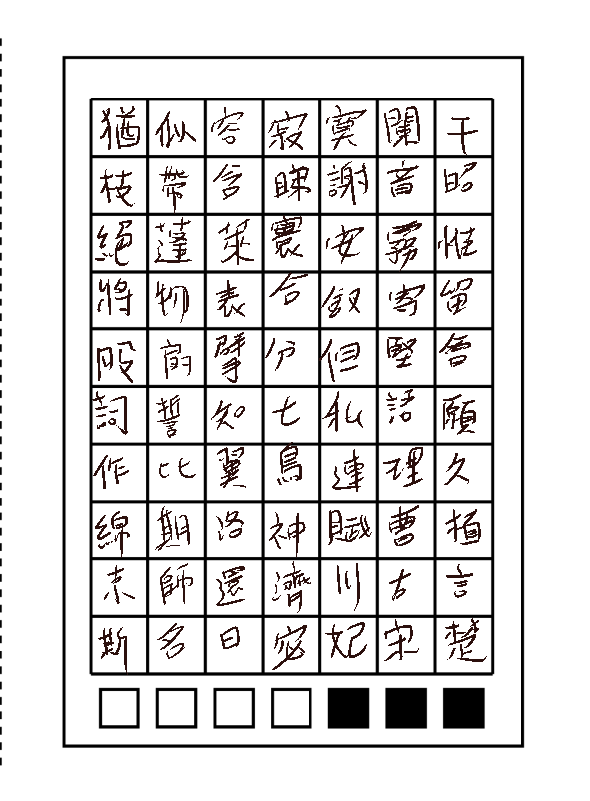 猶似容寂寞闌干
枝帶含睇謝音昭
絕蓬萊寰安霧惟
將物表合釵寄留
股鈿擘分但堅會
詞誓知七私語願
作比翼鳥連理久
綿期洛神賦曹植
京師還濟川古言
斯名曰宓妃宋楚